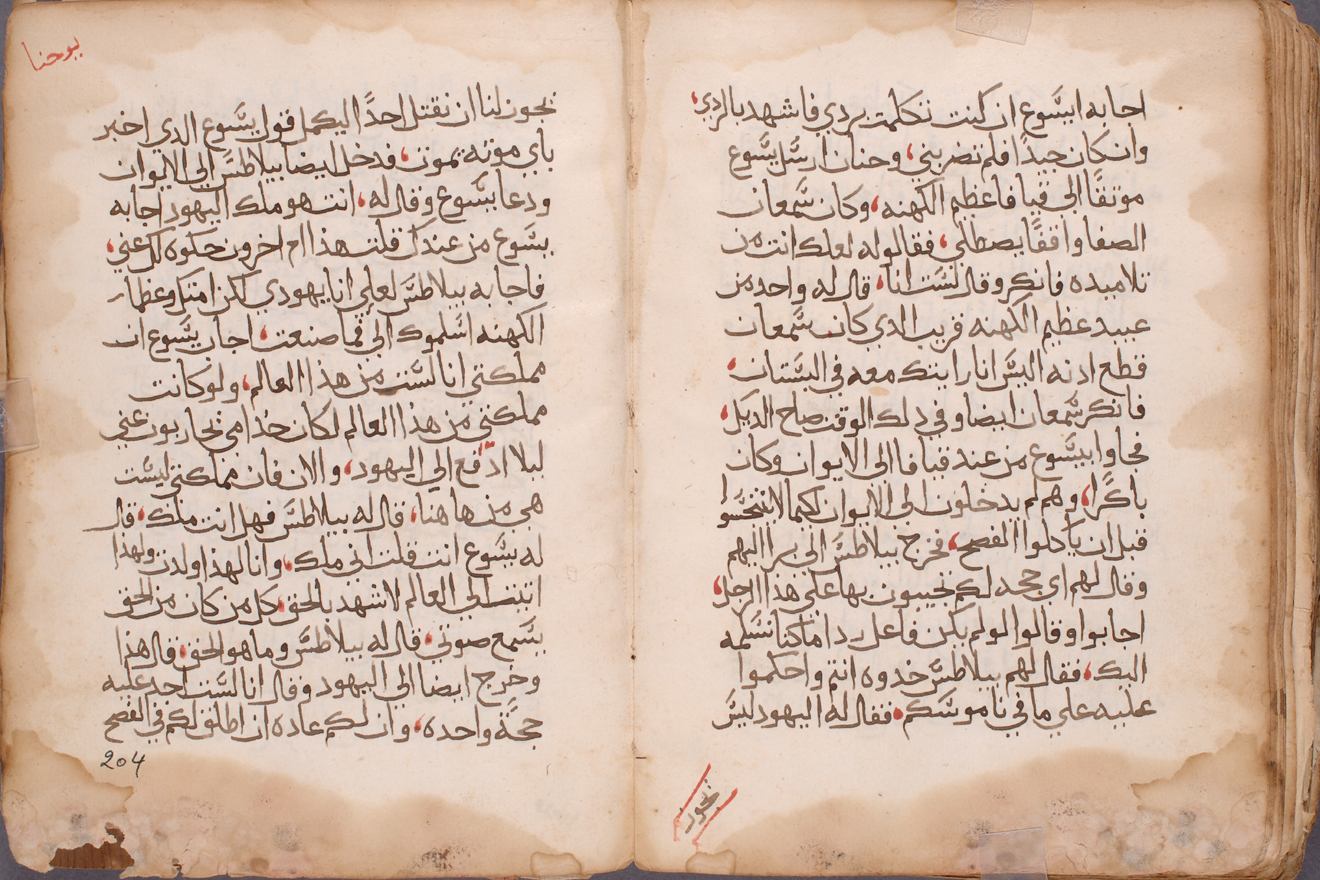 اجابه ايسوع ان كنت تكلمت بردي فاشهد بالردي،
وان كان جيدًا فلم تضربني، وحنان ارسل يسوع
موثقًا الى قيافا عظيم الكهنه، وكان سمعان
الصفا واقفًا يصطلى، فقالوا له لعلك انت من
تلاميده فانكر وقال لست انا، قال له واحد من
عبيد عظيم الكهنه قريب الدي كان سمعان
قطع ادنه اليس انا رايتك معه في البستان،
فانكر سمعان ايضا وفي دلك الوقت صاح الديك،
فجاوا بيسوع من عند قيافا الى الايوان وكان
باكرًا، وهم لم يدخلون الى الايوان لكيما لا يتنجسوا
قبل ان ياكلوا الفصح، فخرج بيلاطس الى برا اليهم
وقال لهم اي حجه لكم تجيبون بها على هذا الرجل،
اجابوا وقالوا لو لم يكن فاعل ردا ما كنا نسلمه
اليك، فقال لهم بيلاطس خدوه انتم واحكموا
عليه على ما في ناموسكم، فقال له اليهود ليس
يجوز
يوحنا
يجوز لنا ان نقتل احدًا ليكمل قول يسوع الدي اخبر
باي موته يموت، فدخل ايضا بيلاطس الى الايوان
ودعا يسوع وقال له، انت هو ملك اليهود اجابه
يسوع من عندك قلت هذا ام اخرون حكوه لك عني،
فاجابه بيلاطس لعلي انا يهودي لكن امتك وعظما
الكهنه اسلموك الي فما صنعت، اجاب يسوع ان
مملكتي انا لست من هذا العالم، ولو كانت
مملكتي من هذا العالم لكان خدامي يحاربون عني
ليلا ادفع الى اليهود، والان فان مملكتي ليست
هي من هاهنا، قال له بيلاطس فهل انت ملك، قال
له يسوع انت قلت اني ملك، وانا لهذا ولدت ولهذا
اتيت الى العالم لاشهد بالحق، كل من كان من الحق
يسمع صوتي، قال له بيلاطس وما هو الحق، قال هذا
وخرج ايضا الى اليهود وقال انا لست اجد عليه
حجة واحده، وان لكم عاده ان اطلق لكم في الفصح
204